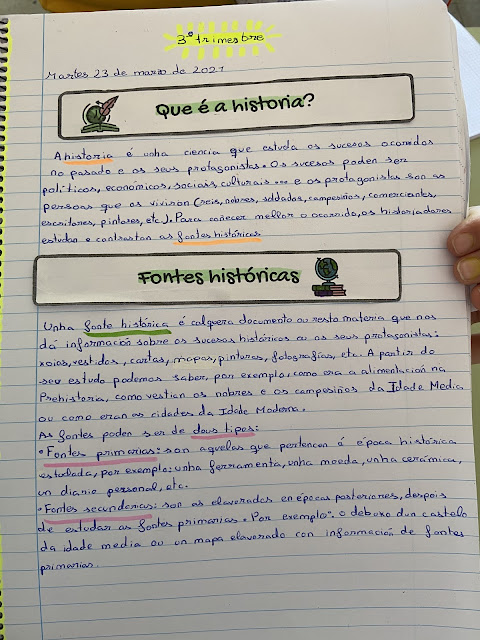 3º trimestre
Martes 23 de marzo de 2021
Que é a historia?
A historia é unha ciencia que estuda os sucesos ocorridos
no pasado e os seus protagonistas. Os sucesos poden ser
políticos, económicos, sociais, culturais... e os protagonistas son as
persoas que os viviron (reis, nobres, soldados, campesiños, comerciantes,
escritores, pintores, etc.). Para coñecer mellor o ocorrido, os historiadores
estudan e contrastan as fontes históricas.
Fontes históricas
Unha fonte histórica é calquera documento ou resto materia que nos
dá información sobre os sucesos históricos ou os seus protagonistas:
xoias, vestidos, cartas, mapas, pinturas, fotografías, etc. A partir do
seu estudo podemos saber, por exemplo, como era a alimentación na
Prehistoria, como vestían os nobres e os campesiños da Idade Media
ou como eran as cidades da Idade Moderna.
As fontes poden ser de dous tipos:
• Fontes primarias: son aquelas que pertencen á época histórica
estudada, por exemplo: unha ferramenta, unha moeda, unha cerámica,
un diario personal, etc.
• Fontes secundarias: son as elavoradas en épocas posteriores, despois
de estudar as fontes primarias. Por exemplo: o debuxo dun castelo
da idade media ou un mapa elavorado con información de fontes
primarias.